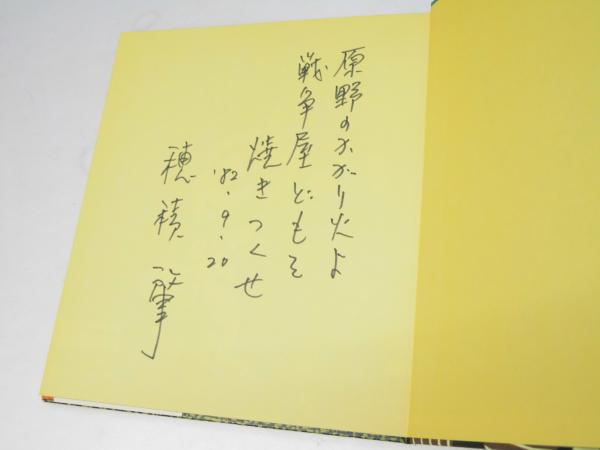 原野のかがり火よ
戦争屋どもを
焼きつくせ
'82.9.20
穂積肇